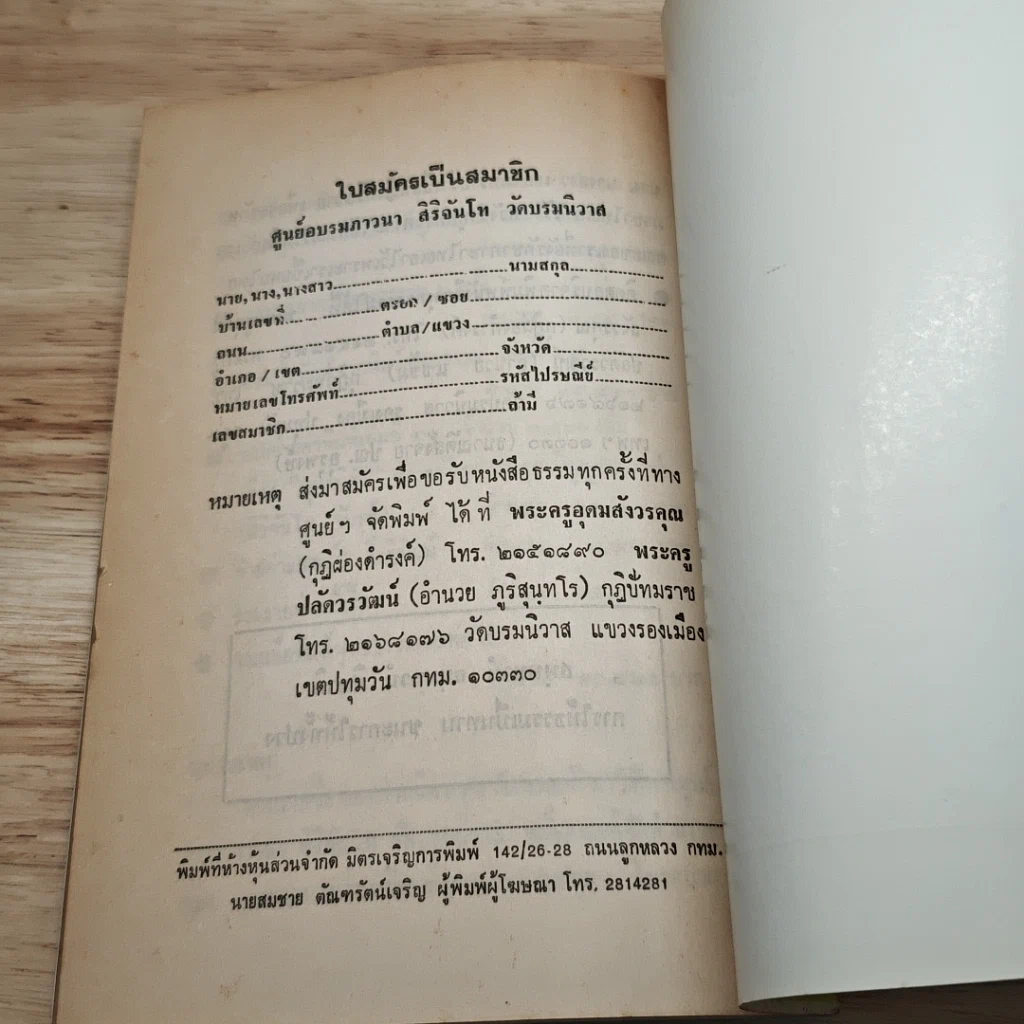 ใบสมัครเป็นสมาชิก
ศูนย์อบรมภาวนา สิริจันโท วัดบรมนิวาส
นาย,นาง,นางสาว........................นามสกุล....................
บ้านเลขที่....................ตรอก / ซอย....................
ถนน....................ตำบล/แขวง....................
อำเภอ / เขต....................จังหวัด....................
หมายเลขโทรศัพท์....................รหัสไปรษณีย์....................
เลขสมาชิก....................ถ้ามี
หมายเหตุ ส่งมาสมัครเพื่อขอรับหนังสือธรรมทุกครั้งที่ทาง
ศูนย์ฯ จัดพิมพ์ ได้ที่ พระครูอุดมสังวรคุณ
(กุฏิผ่องดำรงค์) โทร. ๒๑๕๑๘๙๐ พระครู
ปลัดวรวัฒน์ (อำนวย ภูริสุนฺทโร) กุฏิปัทมราช
โทร. ๒๑๖๘๑๗๖ วัดบรมนิวาส แขวงรองเมือง
เขตปทุมวัน กทม. ๑๐๓๓๐
พิมพ์ที่ห้างหุ้นส่วนจำกัด มิตรเจริญการพิมพ์ 142/26-28 ถนนลูกหลวง กทม.
นายสมชาย ตัณฑรัตน์เจริญ ผู้พิมพ์ผู้โฆษณา โทร. 2814281